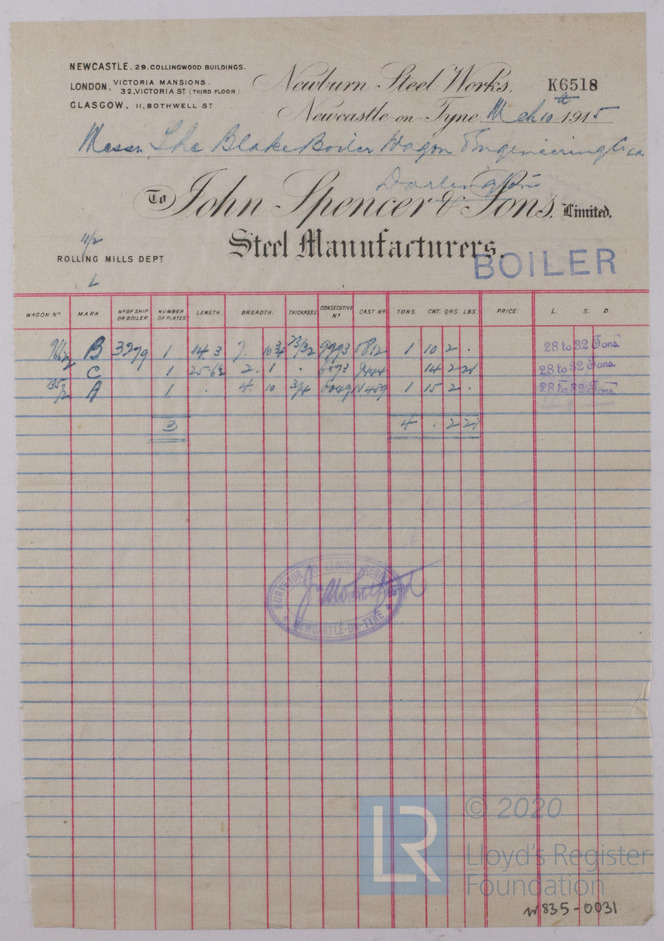 NEWCASTLE. 29. COLLINGWOOD BUILDINGS.
LONDON. VICTORIA MANSIONS. 32, VICTORIA ST (THIRD FLOOR)
GLASGOW, 11, BOTHWELL ST
Newburn Steel Works.
K6518
Newcastle on Tyne, Mch 10th 1915
Messrs The Blake Boiler Wagon & Engineering Co
Darlington
To John Spencer & Sons, Limited.
Steel Manufacturers.
ROLLING MILLS DEPT
BOILER
WAGON No. MARK. No OF SHIP OR BOILER NUMBER OF PLATES LENGTH. BREADTH. THICKNESS CONSECUTIVE No CAST No TONS. CWT. QRS. LBS. PRICE. L. S. D.
B 3279 1 14.3 7. 10 3/4 23/32 1 10 2 . 28 to 32 Tons.
C 1 2.1 . 14 2 21 28 to 32 Tons.
A 1 . 4 10 3/4 1 15 2 . 28 to 32 Tons.
3 4 . 2 21
SURVEYOR
NEWCASTLE-ON-TYNE
LR
© 2020
Lloyd's Register
Foundation
W835-0031